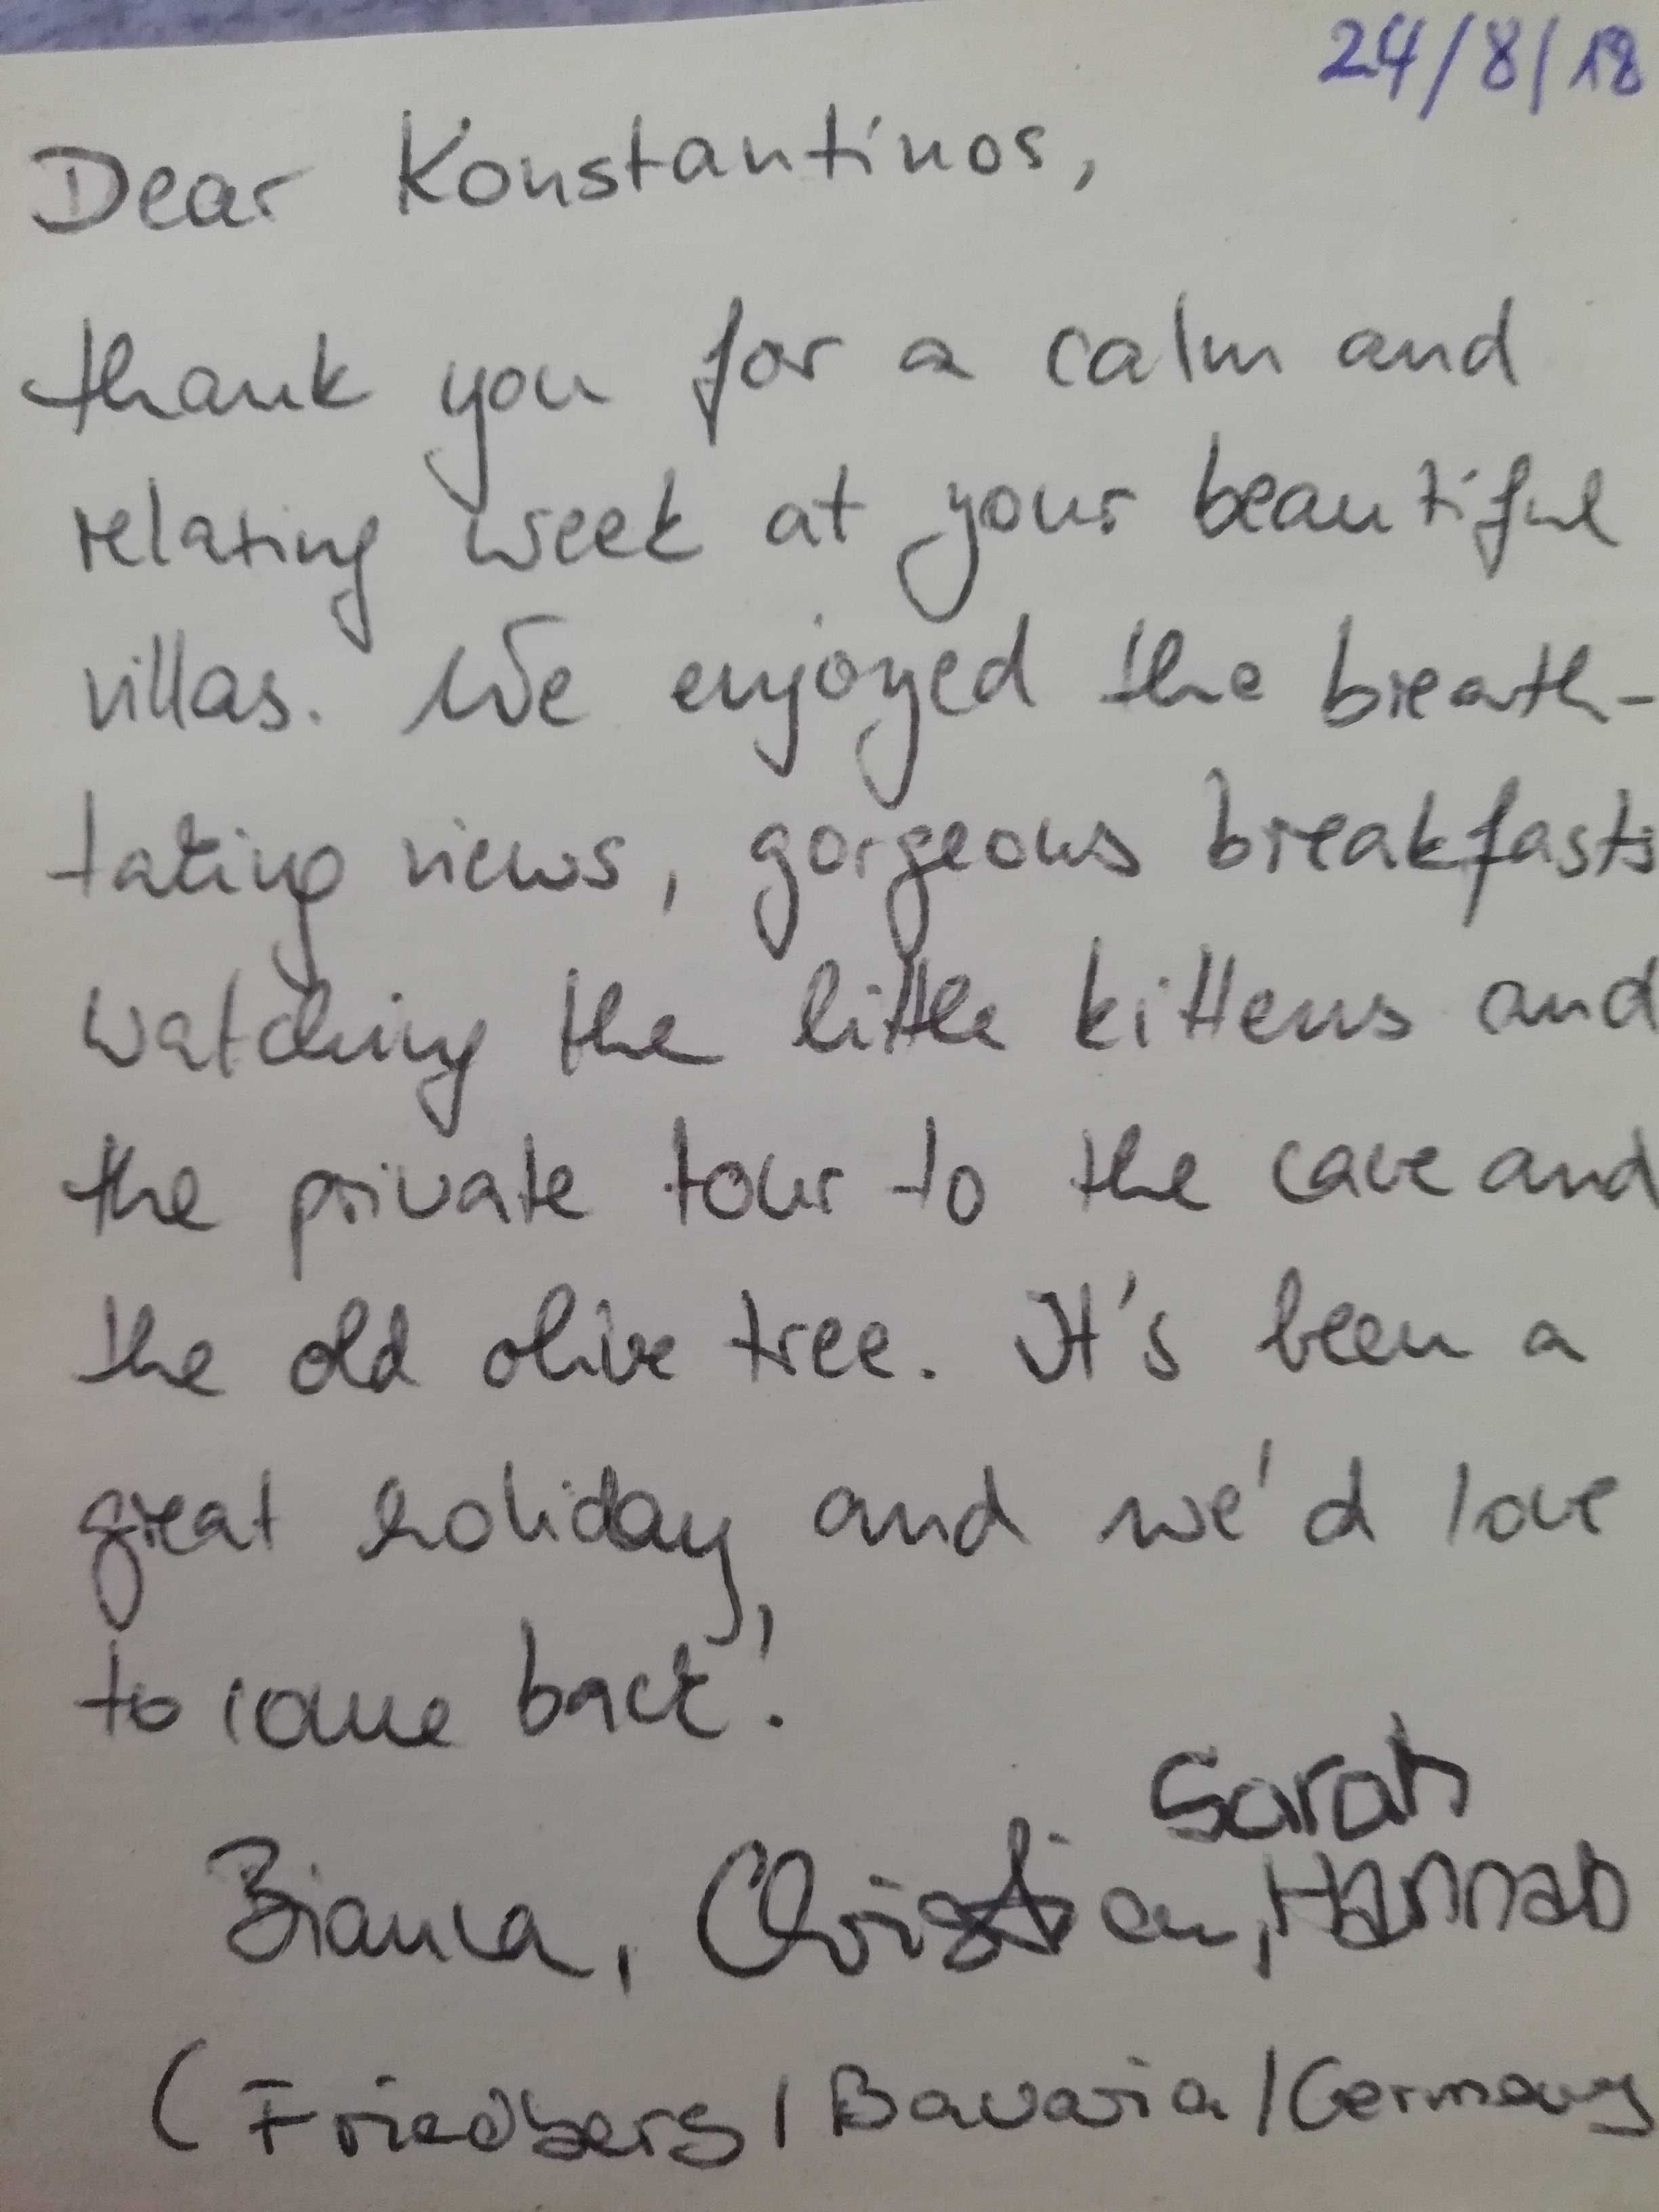 24/8/18
Dear Konstantinos,
thank you for a calm and
relaxing week at your beautiful
villas. We enjoyed the breath-
taking views, gorgeous breakfasts
watching the little kittens and
the private tour to the cave and
the old olive tree. It's been a
great holiday, and we'd love
to come back!
Sarah
Bianca, Christian, Hannah
(Friedberg / Bavaria / Germany